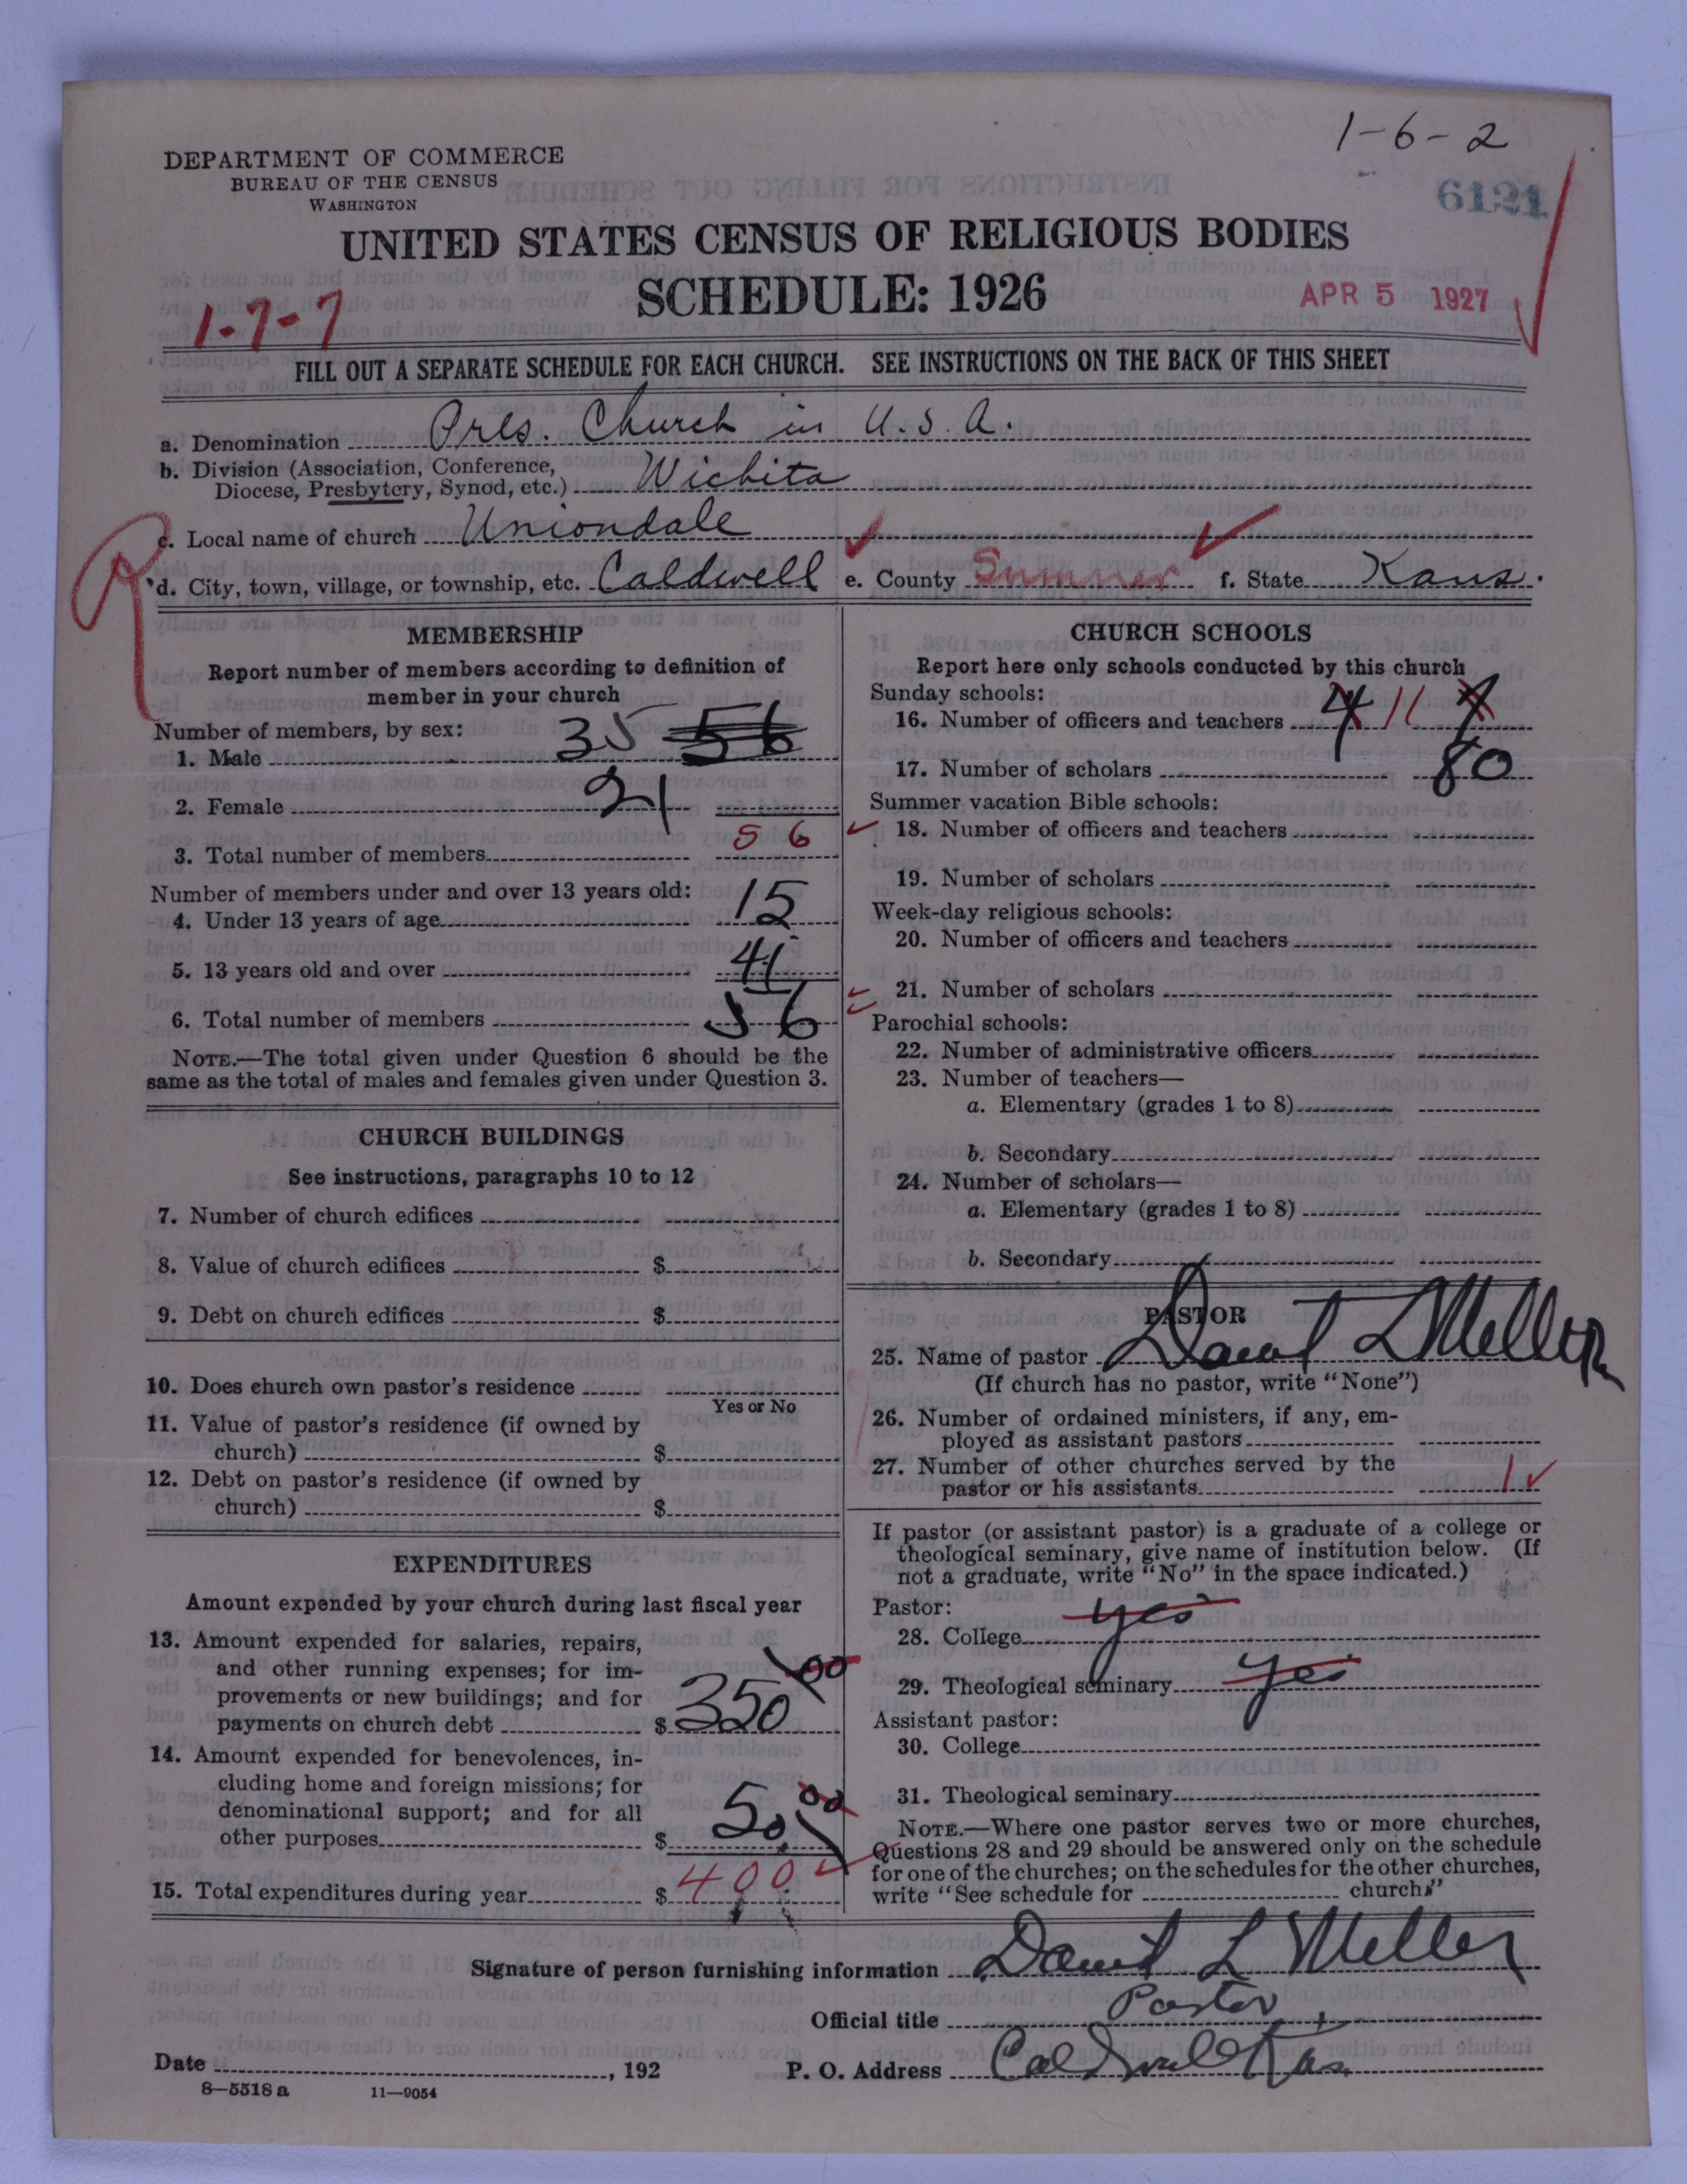 1-6-2
DEPARTMENT OF COMMERCE
BUREAU OF THE CENSUS
WASHINGTON
6121
UNITED STATES CENSUS OF RELIGIOUS BODIES
SCHEDULE: 1926
1-7-7
APR 5 1927
FILL OUT A SEPARATE SCHEDULE FOR EACH CHURCH. SEE INSTRUCTIONS ON THE BACK OF THIS SHEET
a. Denomination Pres. Church in U.S.A.
b. Division (Association, Conference,
Diocese, Presbytery, Synod, etc.) Wichita
c. Local name of church Uniondale
d. City, town, village, or township, etc. Caldwell e. County Sumner f. State Kans.
MEMBERSHIP
Report number of members according to definition of
member in your church
Number of members, by sex:
1. Male 35 56
2. Female 21
3. Total number of members 56
Number of members under and over 13 years old:
4. Under 13 years of age 15
5. 13 years old and over 41
6. Total number of members 56
NOTE.—The total given under Question 6 should be the
same as the total of males and females given under Question 3.
CHURCH BUILDINGS
See instructions, paragraphs 10 to 12
7. Number of church edifices
8. Value of church edifices $
9. Debt on church edifices $
10. Does church own pastor's residence
Yes or No
11. Value of pastor's residence (if owned by
church) $
12. Debt on pastor's residence (if owned by
church) $
EXPENDITURES
Amount expended by your church during last fiscal year
13. Amount expended for salaries, repairs,
and other running expenses; for im-
provements or new buildings; and for
payments on church debt $ 350 00
14. Amount expended for benevolences, in-
cluding home and foreign missions; for
denominational support; and for all
other purposes $ 50 00
15. Total expenditures during year $ 400
CHURCH SCHOOLS
Report here only schools conducted by this church
Sunday schools:
16. Number of officers and teachers 4 11 7
17. Number of scholars 80
Summer vacation Bible schools:
18. Number of officers and teachers
19. Number of scholars
Week-day religious schools:
20. Number of officers and teachers
21. Number of scholars
Parochial schools:
22. Number of administrative officers
23. Number of teachers—
a. Elementary (grades 1 to 8)
b. Secondary
24. Number of scholars—
a. Elementary (grades 1 to 8)
b. Secondary
PASTOR
25. Name of pastor David L Meller
(If church has no pastor, write "None")
26. Number of ordained ministers, if any, em-
ployed as assistant pastors
27. Number of other churches served by the
pastor or his assistants 1
If pastor (or assistant pastor) is a graduate of a college or
theological seminary, give name of institution below. (If
not a graduate, write "No" in the space indicated.)
Pastor:
28. College yes
29. Theological seminary yes
Assistant pastor:
30. College
31. Theological seminary
NOTE.—Where one pastor serves two or more churches,
Questions 28 and 29 should be answered only on the schedule
for one of the churches; on the schedules for the other churches,
write "See schedule for church."
Signature of person furnishing information David L Meller
Official title Pastor
Date , 192 P. O. Address Caldwell Kas
8—5518 a 11—9054